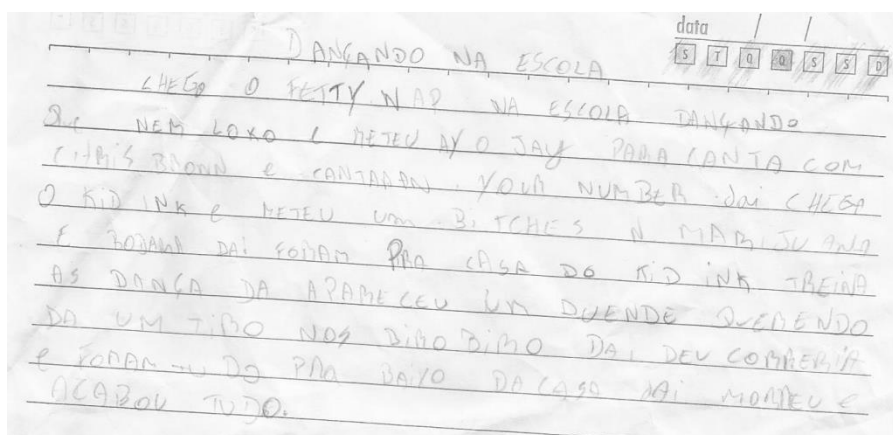 data / /
S T Q Q S S D
DANÇANDO NA ESCOLA
CHEGO O FETTY WAP NA ESCOLA DANÇANDO
Que NEM LOKO E METEU AY O JAY PARA CANTA COM
CHRIS BROWN e CANTARAN YOUR NUMBER dai CHEGA
O KID INK e METEU UM BITCHES N MARIJUANA
E RODARA DAI FORAM PRA CASA DO KID INK TREINA
AS DANÇA DA APARECEU UM DUENDE QUERENDO
DA UM TIRO NOS BIROBIRO DAI DEU CORRERIA
e FORAM TUDO PRA BAIXO DA CASA DAI MORREU E
ACABOU TUDO.